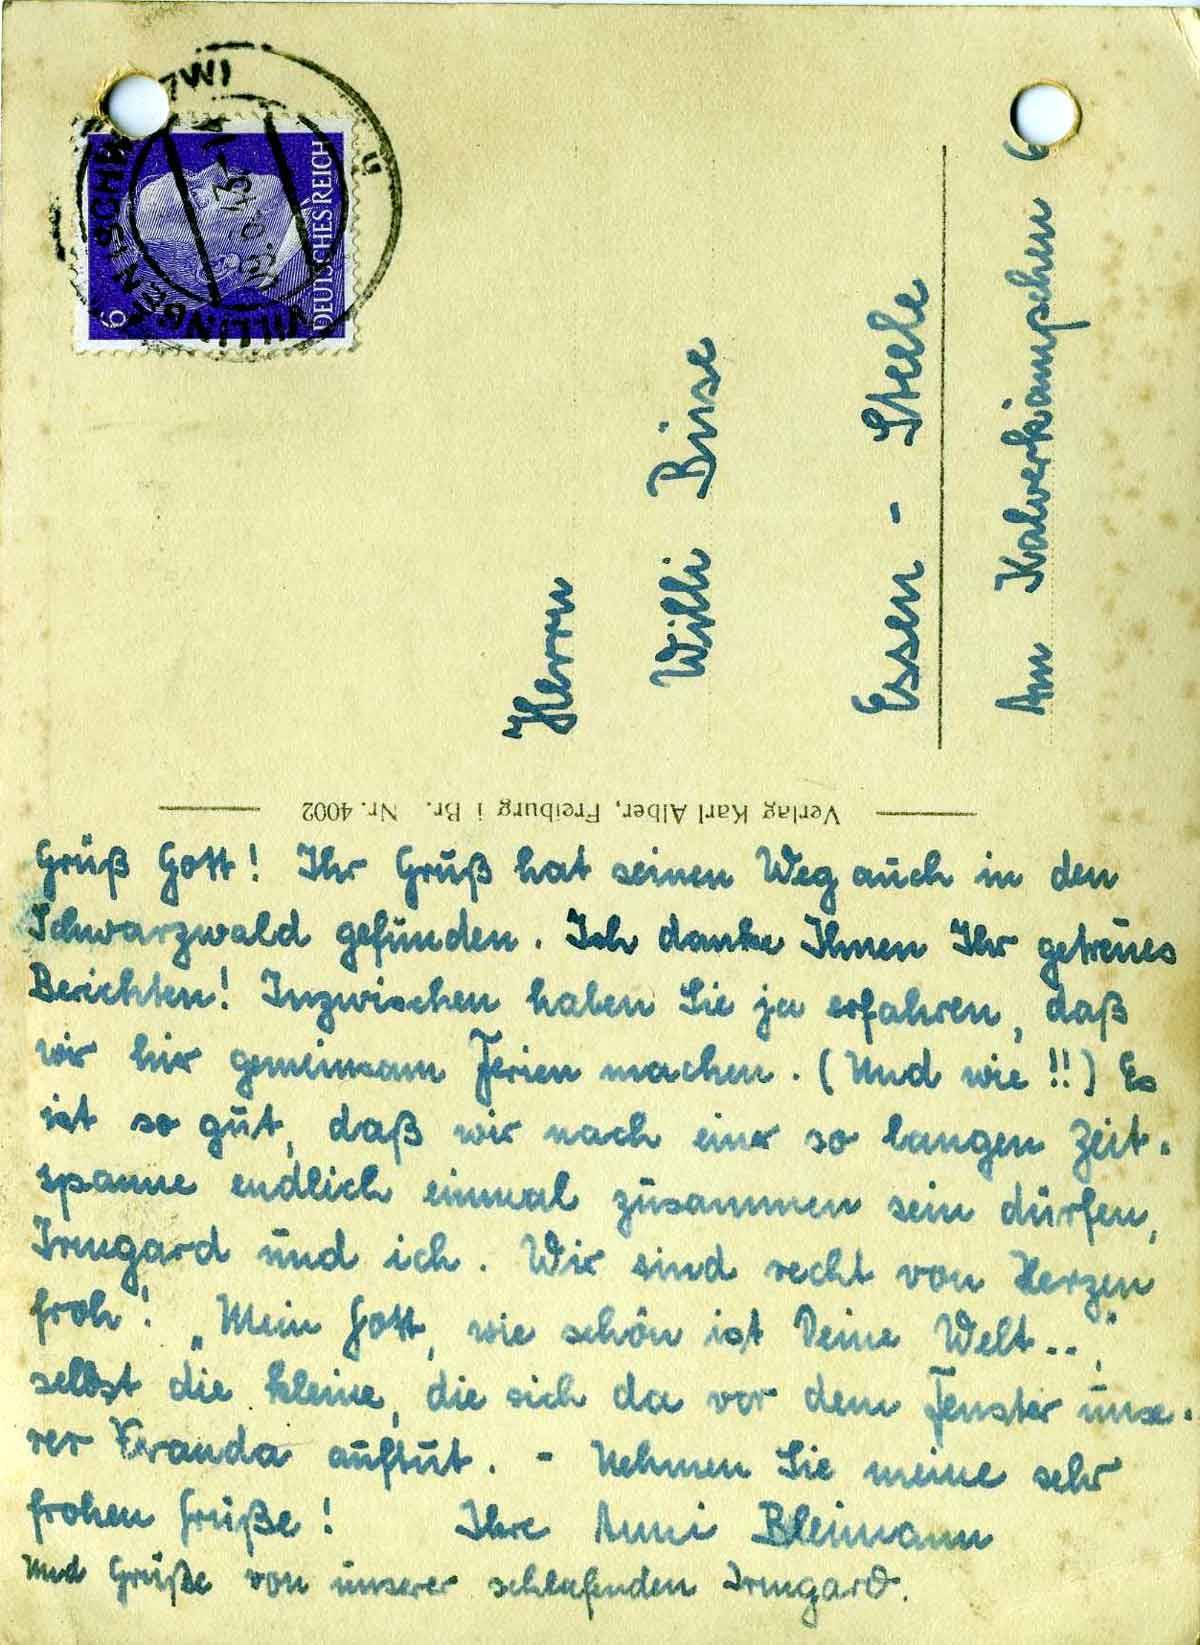 DEUTSCHES REICH
6
Herrn
Willi Binse
Essen - Steele
Am Kalverkämpchen 6
Verlag Karl Alber, Freiburg i Br. Nr. 4002
Grüß Gott! Ihr Gruß hat seinen Weg auch in den
Schwarzwald gefunden. Ich danke Ihnen Ihr getreues
Berichten! Inzwischen haben Sie ja erfahren, daß
wir hir gemeinsam Ferien machen. (Und wie!!) Es
ist so gut, daß wir nach einer so langen Zeit-
spanne endlich einmal zusammen sein dürfen,
Irmgard und ich. Wir sind recht von Herzen
froh! „Mein Gott, wie schön ist Deine Welt..,"
selbst die kleine, die sich da vor dem Fenster unse-
rer Veranda auftut. - Nehmen Sie meine sehr
frohen Grüße! Ihre Anni Bleimann
Und Grüße von unserer schlafenden Irmgard.